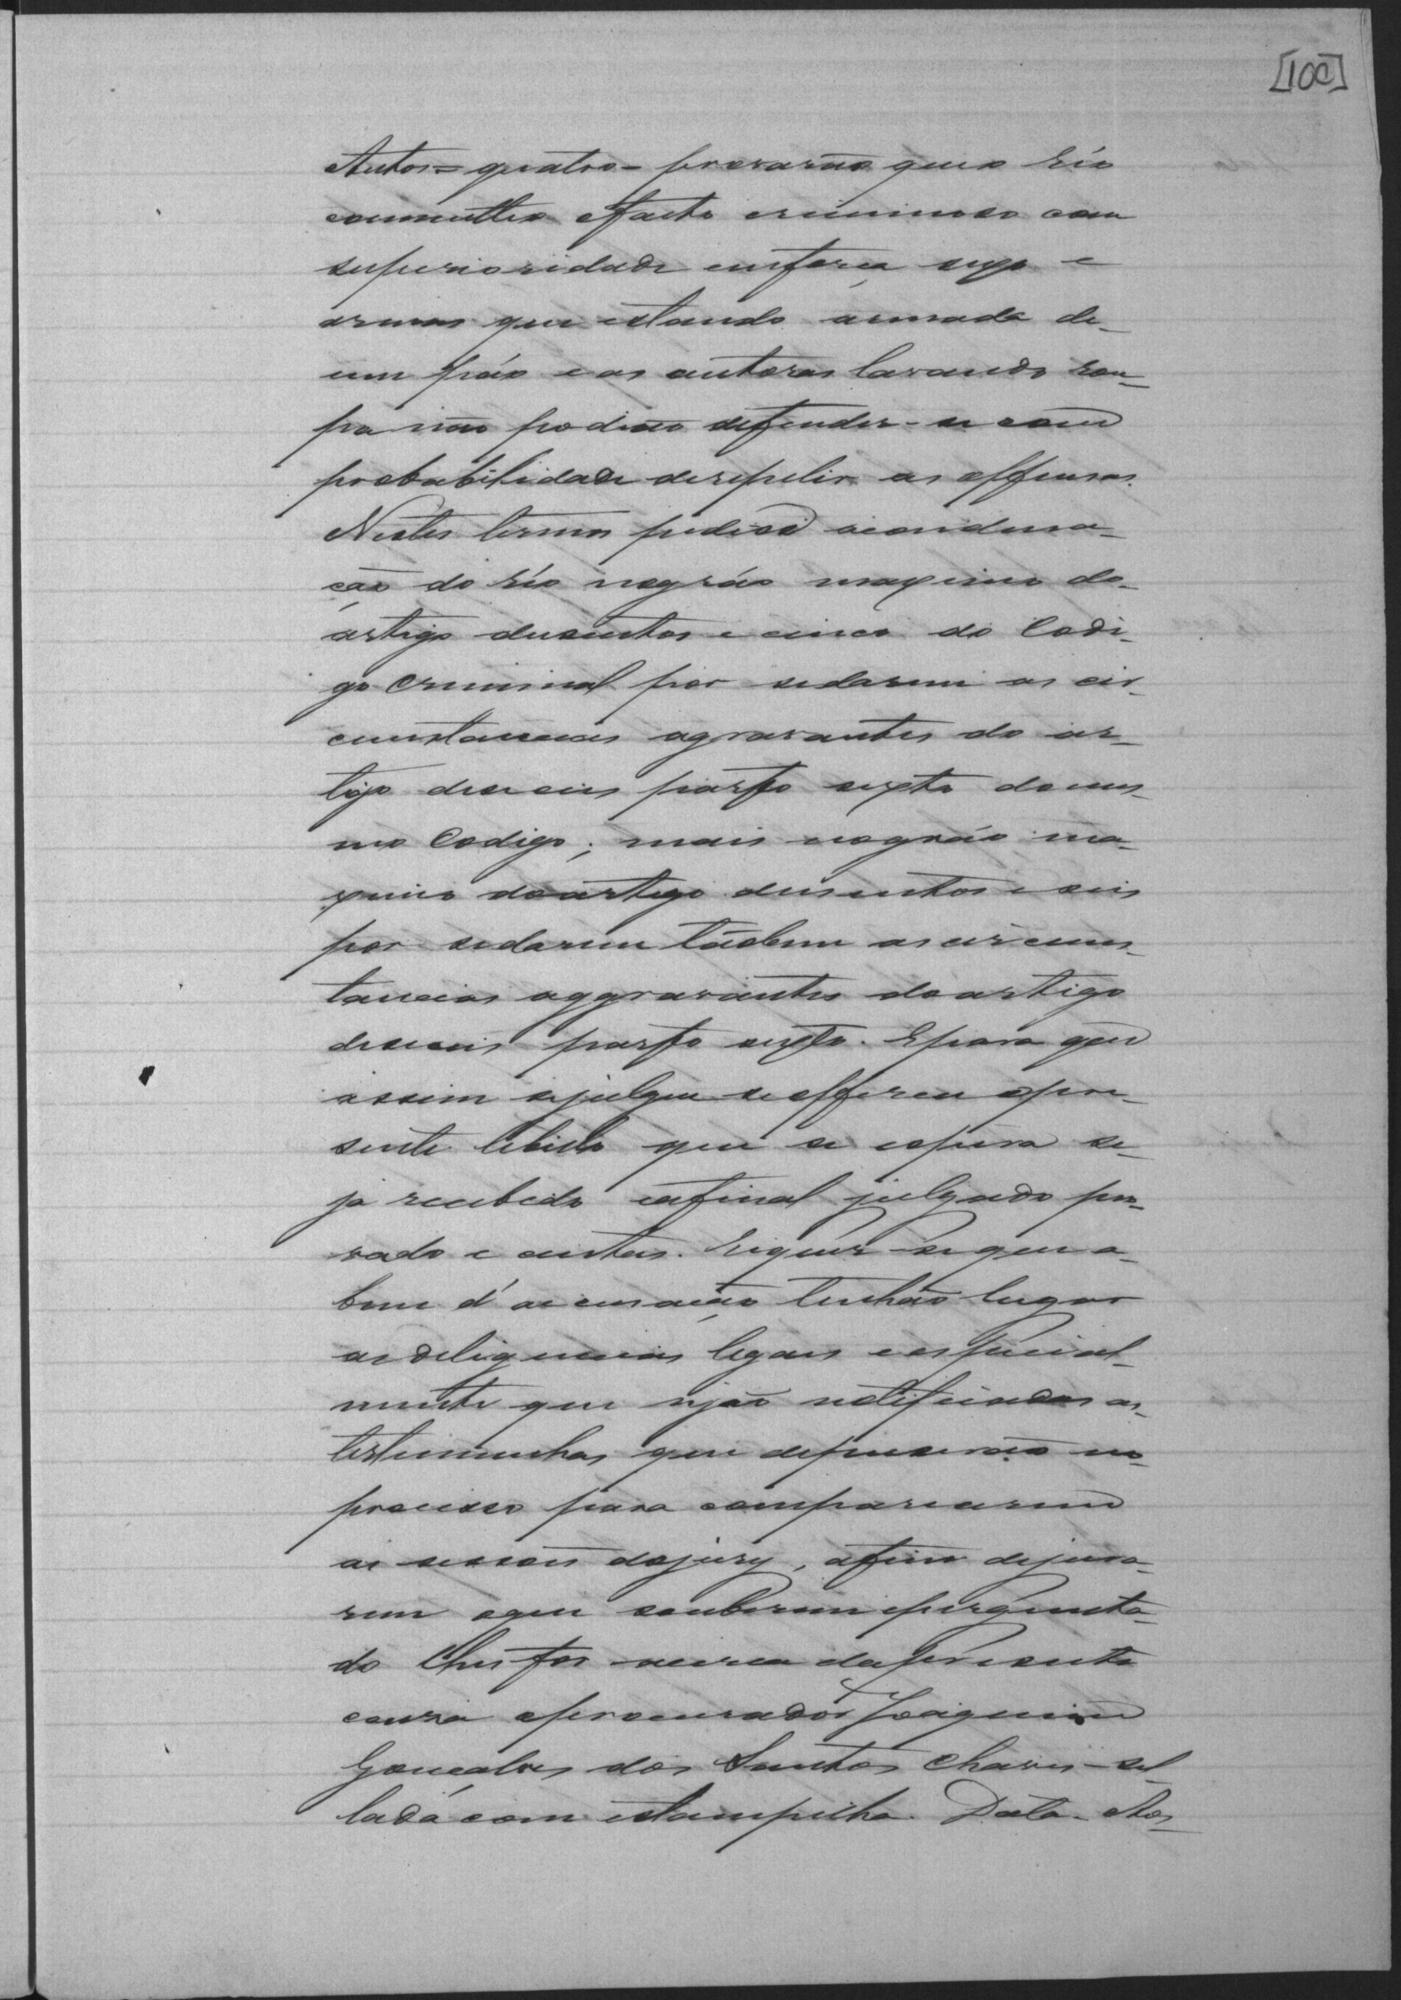 [100]
Autos = quatro = provarão que o réo
commetteo o facto criminoso com
superioridade em força sexo e
armas que estando armado de
um páo e as autoras lavando rou-
pa não podião defender-se com
probabilidade de repelir as offensas.
Nestes termos pedese a condena-
ção do réo no gráo maximo do
artigo dusentos e cinco do Codi-
go Criminal por se darem as cir-
cunstancias agravantes do ar-
tigo deseceis parfo sexto do mes-
mo Codigo; mais no gráo ma-
ximo do artigo dusentos e seis
por se darem tãobem as circuns-
tancias aggravantes do artigo
deseceis parfo sexto. E para que
assim se julgue se offerece o pre-
sente libello que se espera se-
ja recebido e afinal julgado pro-
vado e custas. Requer-se que a
bem d'accusação tenhão lugar
as deligencias legais e especial-
mente que sejão notificadas as
testemunhas que depuserão no
processo para comparecerem
as sessões do jury, afim de jura-
rem o que souberem e pergunta-
do lhes for acerca da presente
causa o procurador Joaquim
Gonçalves dos Santos Chaves - sel-
lada com estampilha. Data - Aos